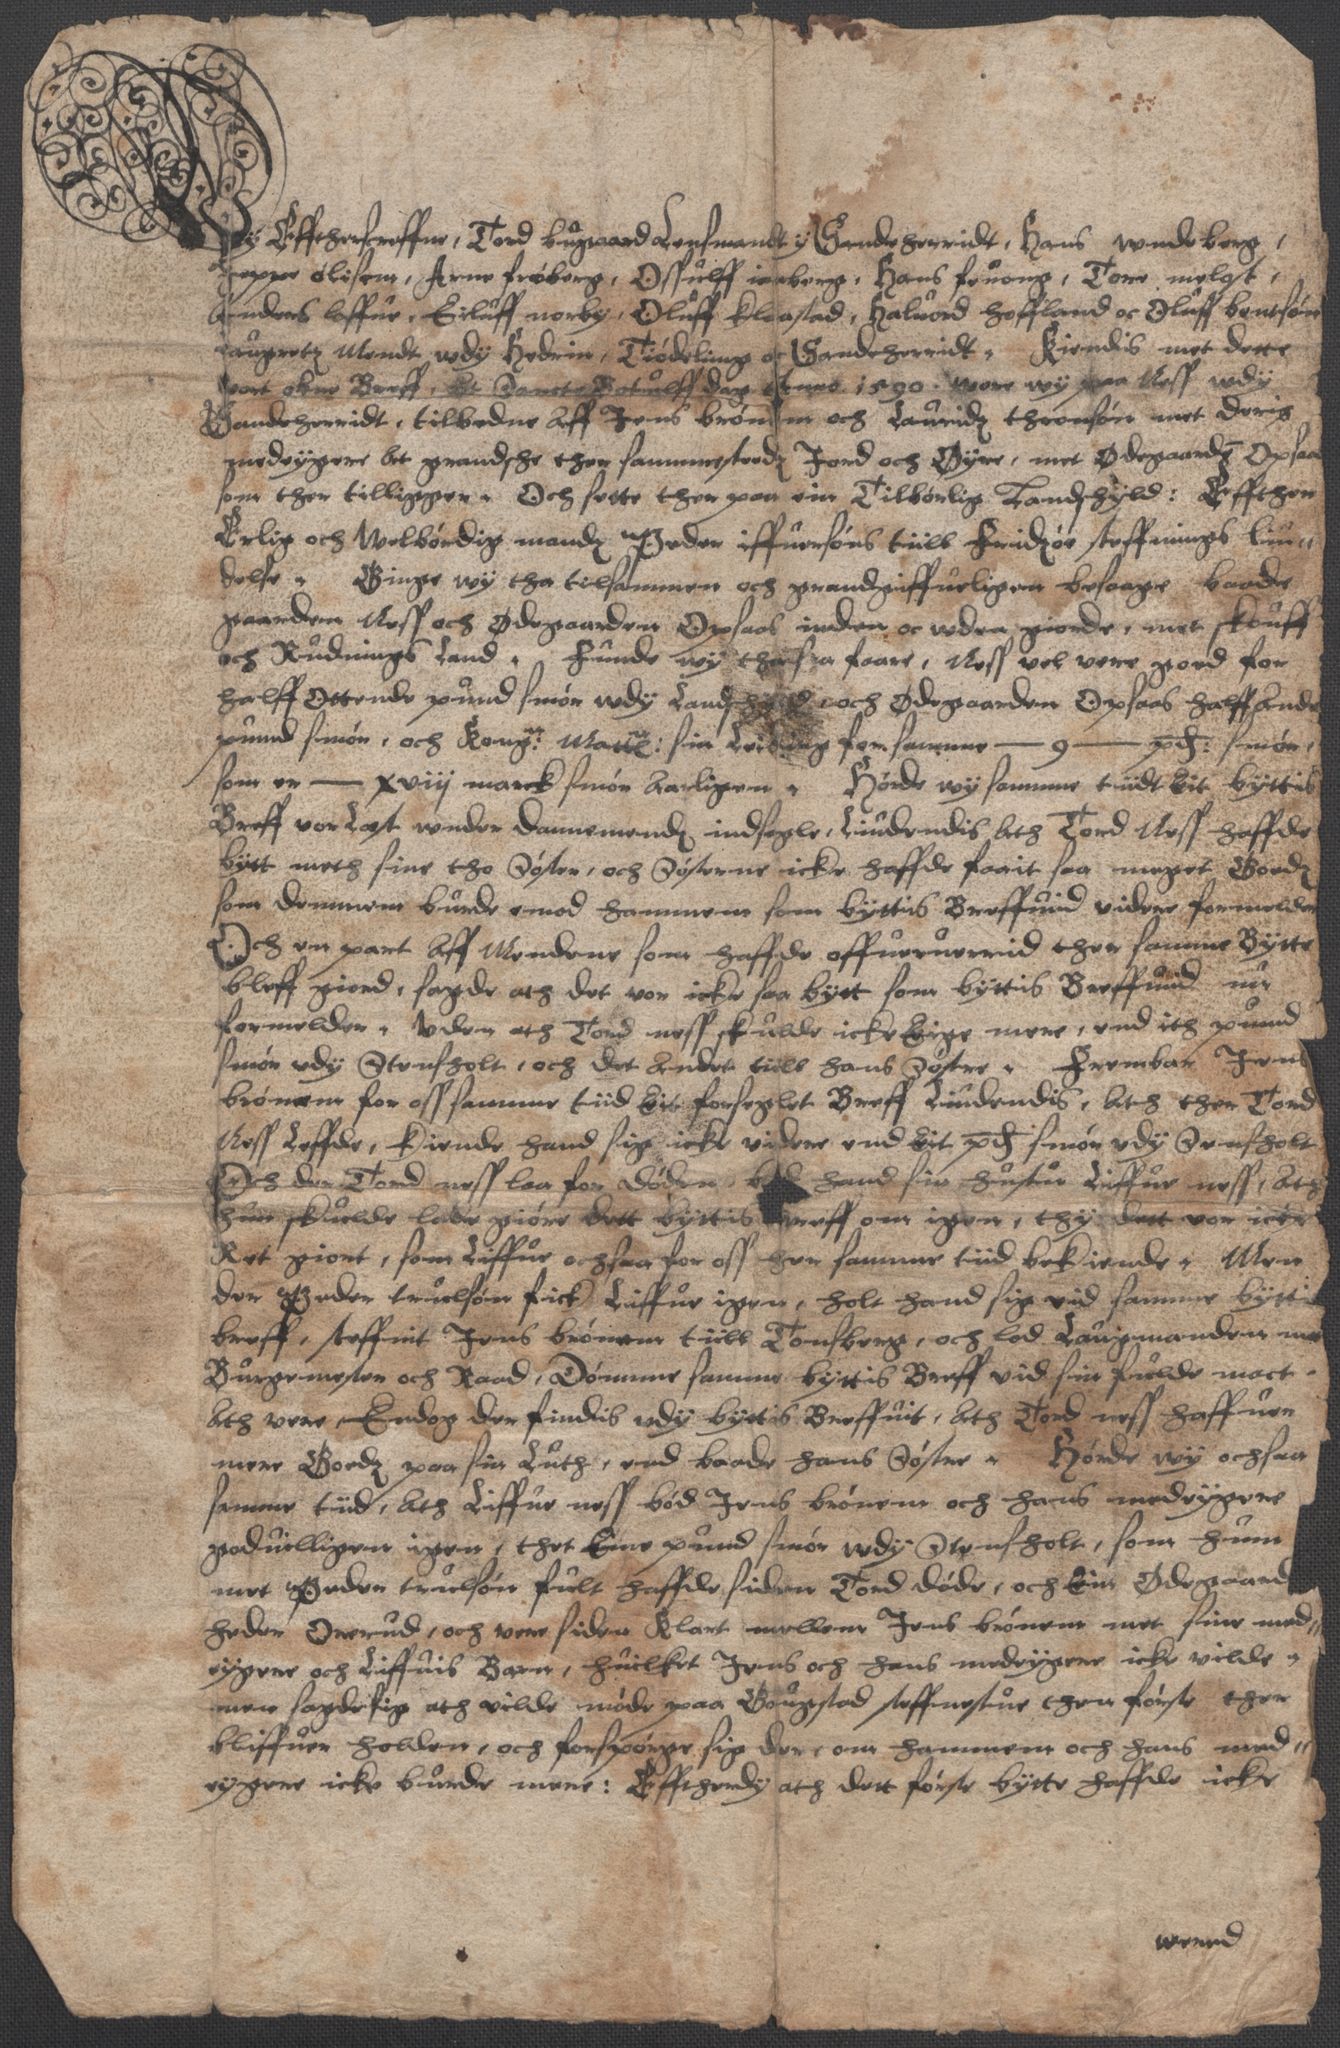 Wy Efftherscreffne, Tord bugaard Lensmandt y Sandeherridt, Hans wndeberg,
Jeppe ølisem, Arne frøberg, Ossulff iaaberg, Hans feuang, Tore melost,
Anders loffue, Eiluff norby, Oluff klaastad, Haluord hoffland oc Oluff bentsøn
Laugretz Mendt wdy Hedrim, Tiødeling oc Sandeherridt, Kiendis met dette
vort obne Breff, At Sancte Botulffs dag Anno 1590. vore wy paa Ness wdy
Sandeherridt, tilbedne Aff Jens brønem och Lauridz thronsøn met deris
medeygere At grandske ther sammestedz Jord och Øyre, met Ødegaardz Opsaas
som ther tilligger. Och sette ther paa ein Tilbørlig Landskyld: Effther
Erlig och Welbørdig mandz Peder iffuersøns till Fridzøe steffnings liu-
delse. Ginge wy tha tilsammen och grandgiffueligen besaage baade
gaarden Ness och Ødegaarden Opsaas inden oc wden giorde, met skouff
och Rudnings Land. Funde wy tha saa faare, Ness vel vere god for
halff Ottende pund smør wdy Landskyld, och Ødegaarden Opsaas halff Andet
pund smør, och Kong: Matt: sin Leiding for samme — 9 — pd: smør,
som er — xviij marck smør Aarligen. Hørde wy samme tiidt Eit byttis
Breff vor Læst wnder dannemendz indsegle, Liudendis Ath Tord Ness haffde
bytt meth sine tho Søster, och Søsterne icke haffde faait saa meget Godz
som dennem burde emod hannem som byttis Breffuid videre formelder
Och en part Aff Mendene som haffde offueruerrid ther samme Bytte
bleff giord, sagde ath det vor icke saa bytt som byttis Breffuid nu
formelder. Vden ath Tord ness skulde icke Eige mere, end ith pund
smør vdy Stensholt, och det Andet till hans Søstre. Frembar Jens
brønem for oss samme tiid Eit forseglet Breff Liudendis, Ath ther Tord
Ness Leffde, kiende hand sig icke videre end Eit pd smør vdy Stensholt
Och der Tord ness laa for døden, bad hand sin hustru Liffue ness, Ath
hun skulde lade giøre dett byttis breff om igen, thy dett vor icke
Ret giort, som Liffue ochsaa for oss her samme tiid bekiende. Men
der Peder truelsøn fick Liffue igen, holt hand sig vid samme byttis
breff, steffnit Jens brønem till Tonsberg, och lod Laugmanden met
Burgemester och Raad, Dømme samme byttis Breff vid sin fulde mact
Ath vere, Endog der findis vdy byttis Breffuit, Ath Tord ness haffuer
mere Godz paa sin Luth, end baade hans Søstre. Hørde wy ochsaa
samme tiid, Ath Liffue ness bød Jens brønem och hans medeygere
goduilligen igen, thet Eine pund smør wdy Stensholt, som hun
met Peder truelsøn fult haffde siden Tord døde, och Ein Ødegaard
heder Ourrud, och vere siden klart mellem Jens brønem met sine med-
eygere och Liffuis Barn, huilket Jens och hans medeygere icke vilde,
men sagde sig ath vilde møde paa Gougstad steffnestue then første ther
bliffuer holden, och forspørge sig der, om hannem och hans med-
eygere icke burde mere: Efftherdy ath dett første bytte haffde icke
werrid